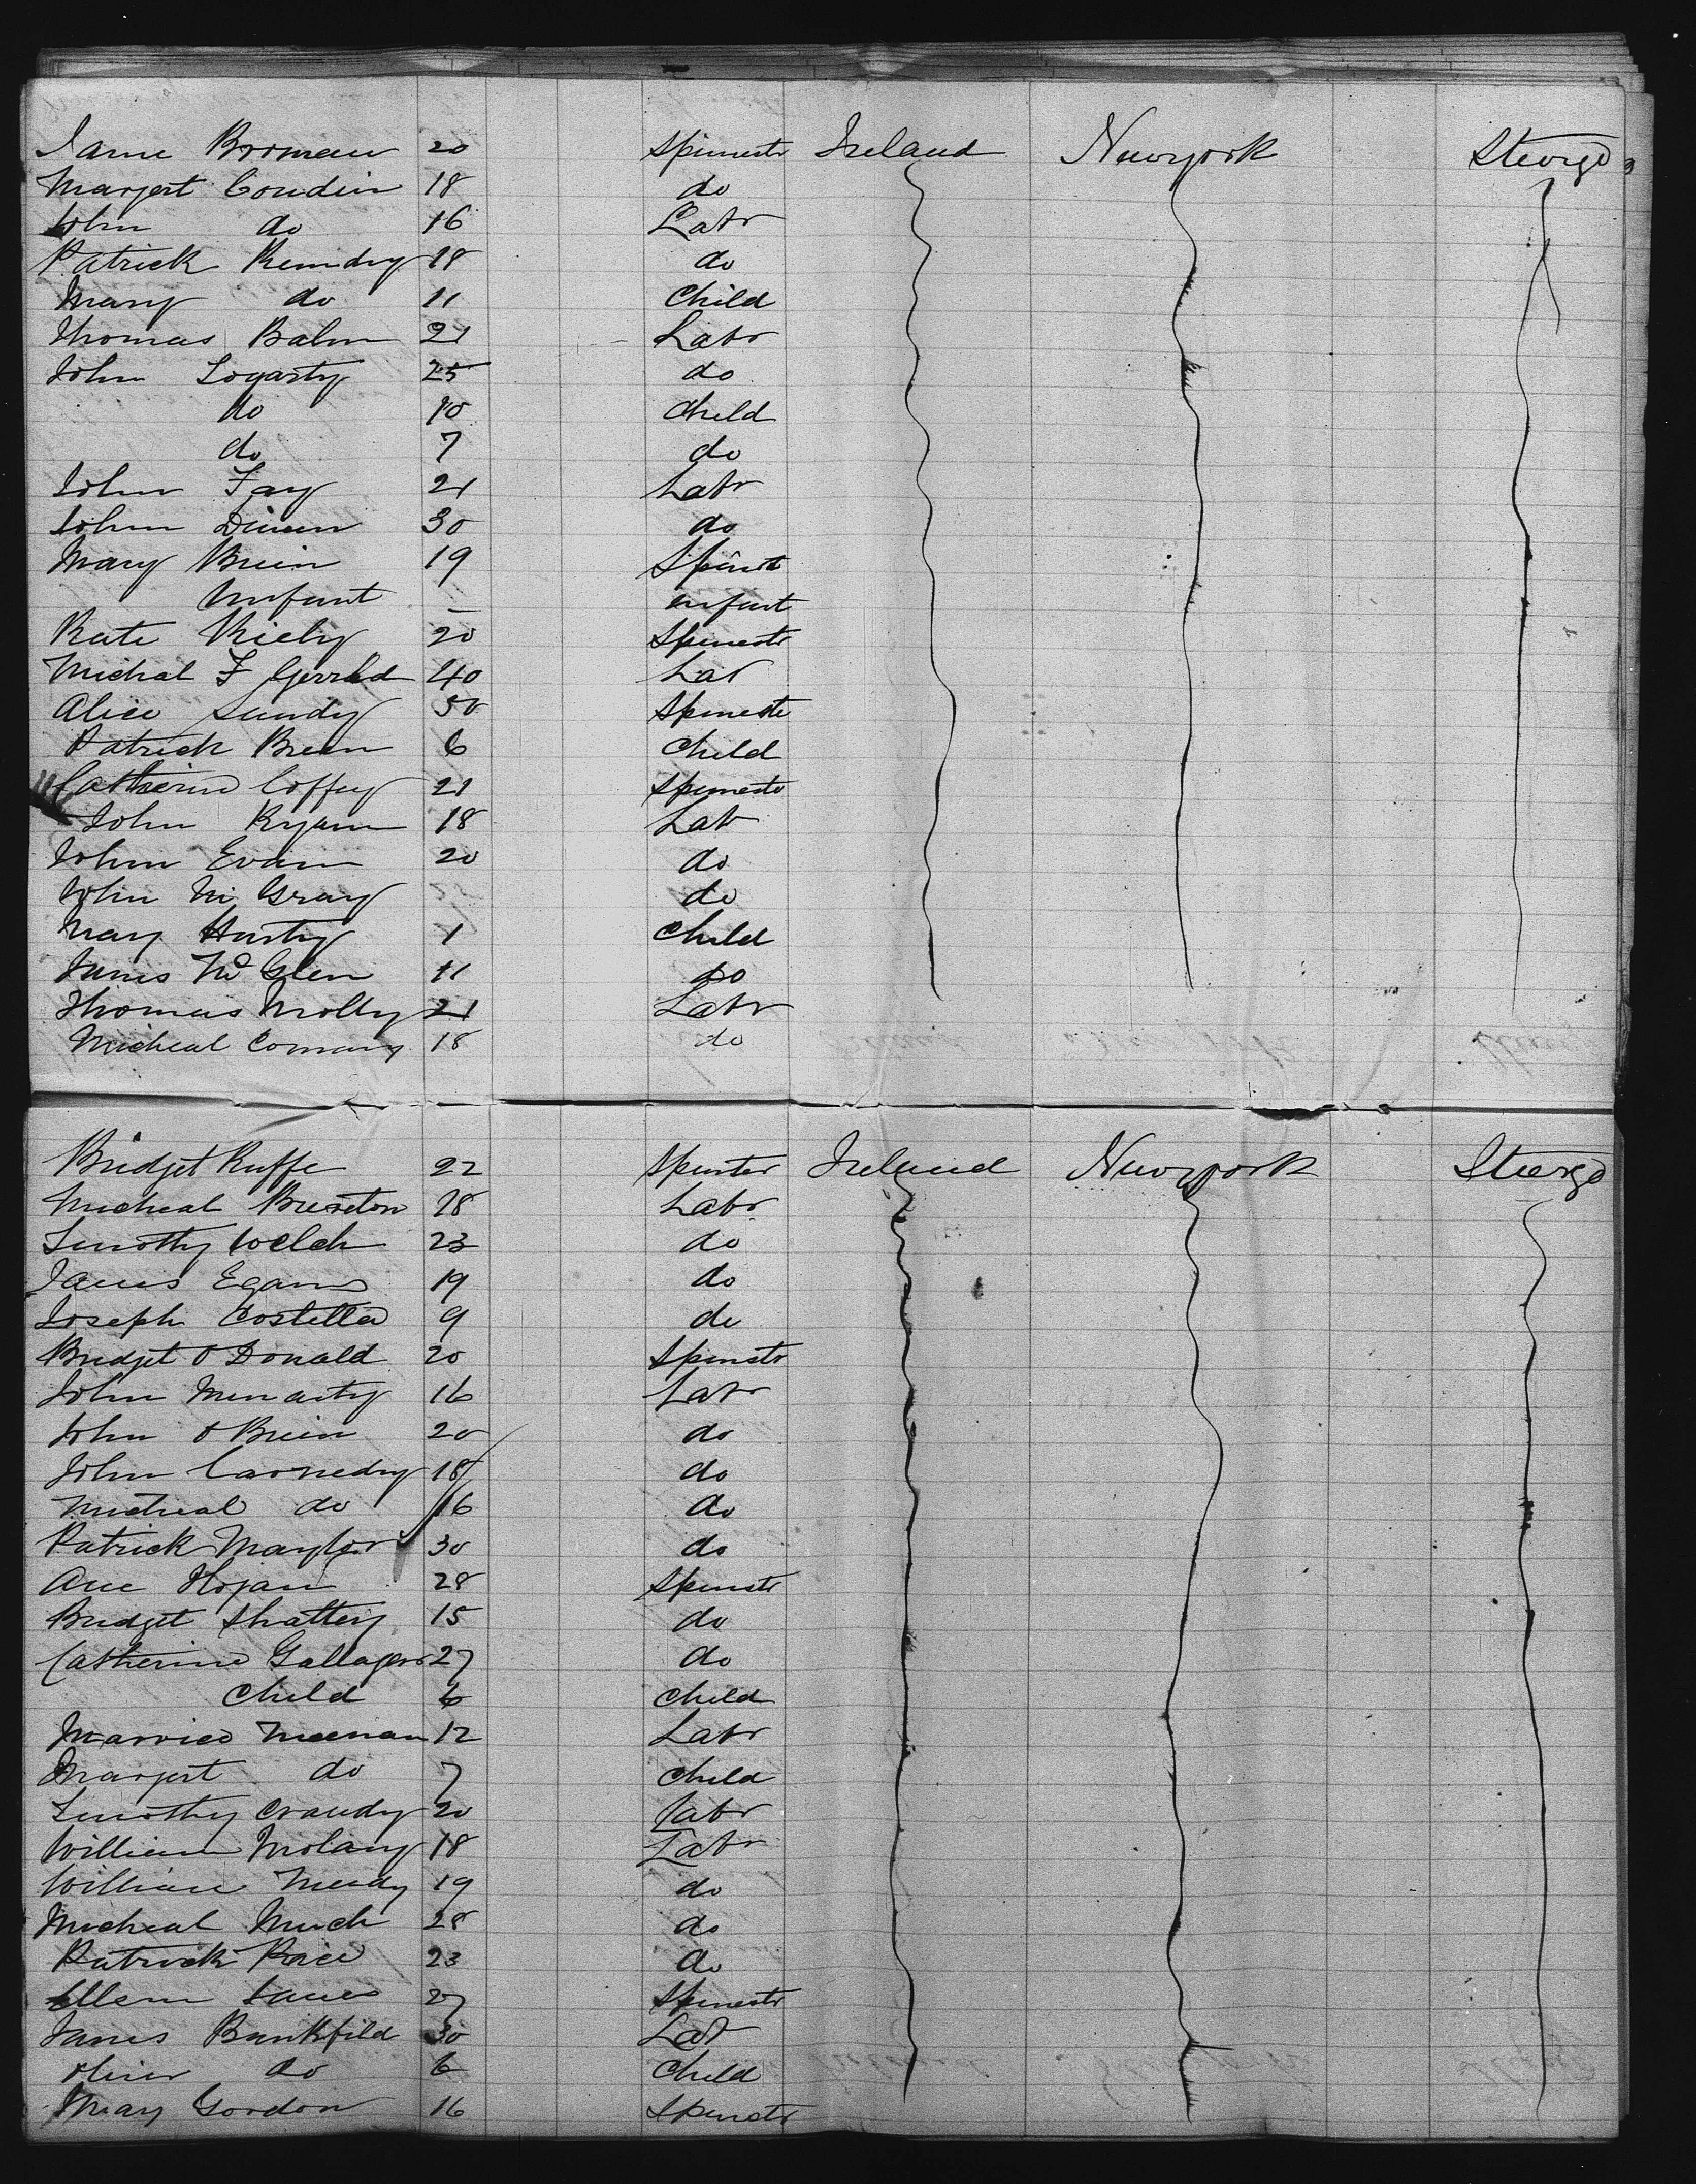 Jame Borman 20 Spinestr Ireland Newyork Steerge
Margert Condin 18 do
John do 16 Labr
Patrick Kenndy 18 do
Mary do 11 Child
Thomas Balm 21 Labr
John Fogarty 25 do
do 10 Child
do 7 do
John Fay 21 Labr
John Dinen 30 do
Mary Brein 19 Spinst
Infant infant
Kate Kiely 20 Spinestr
Michal F Gerrald 40 Lab
Alice Lundy 50 Spineste
Patrick Breen 6 Child
Catherine Coffey 21 Spineste
John Ryann 18 Lab
John Evans 20 do
John Mc Gray do
Mary Hasty 1 Child
James Mc Glen 11 do
Thomas Molly 21 Labr
Micheal Comany 18 do
Bridget Ruffe 22 Spinster Ireland Newyork Steerge
Micheal Bureton 28 Labr
Timothy Welch 23 do
James Egan 19 do
Joseph Costella 9 do
Bridget O Donald 20 Spinstr
John Menarty 16 Labr
John O Brein 20 do
John Carnedy 18 do
Micheal do 16 do
Patrick Maylor 30 do
Ane Hogan 28 Spinstr
Bridget Shattery 15 do
Catherine Gallager 27 do
Child 6 Child
Marrice Meenan 12 Labr
Margert do 7 Child
Timothy Craudy 20 Labr
William Molany 18 Labr
William Meady 19 do
Micheal Much 28 do
Patrick Race 23 do
Ellen 27 Spinestr
James Bankfild 30 Lab
do 6 Child
Mary Gordon 16 Spinstr